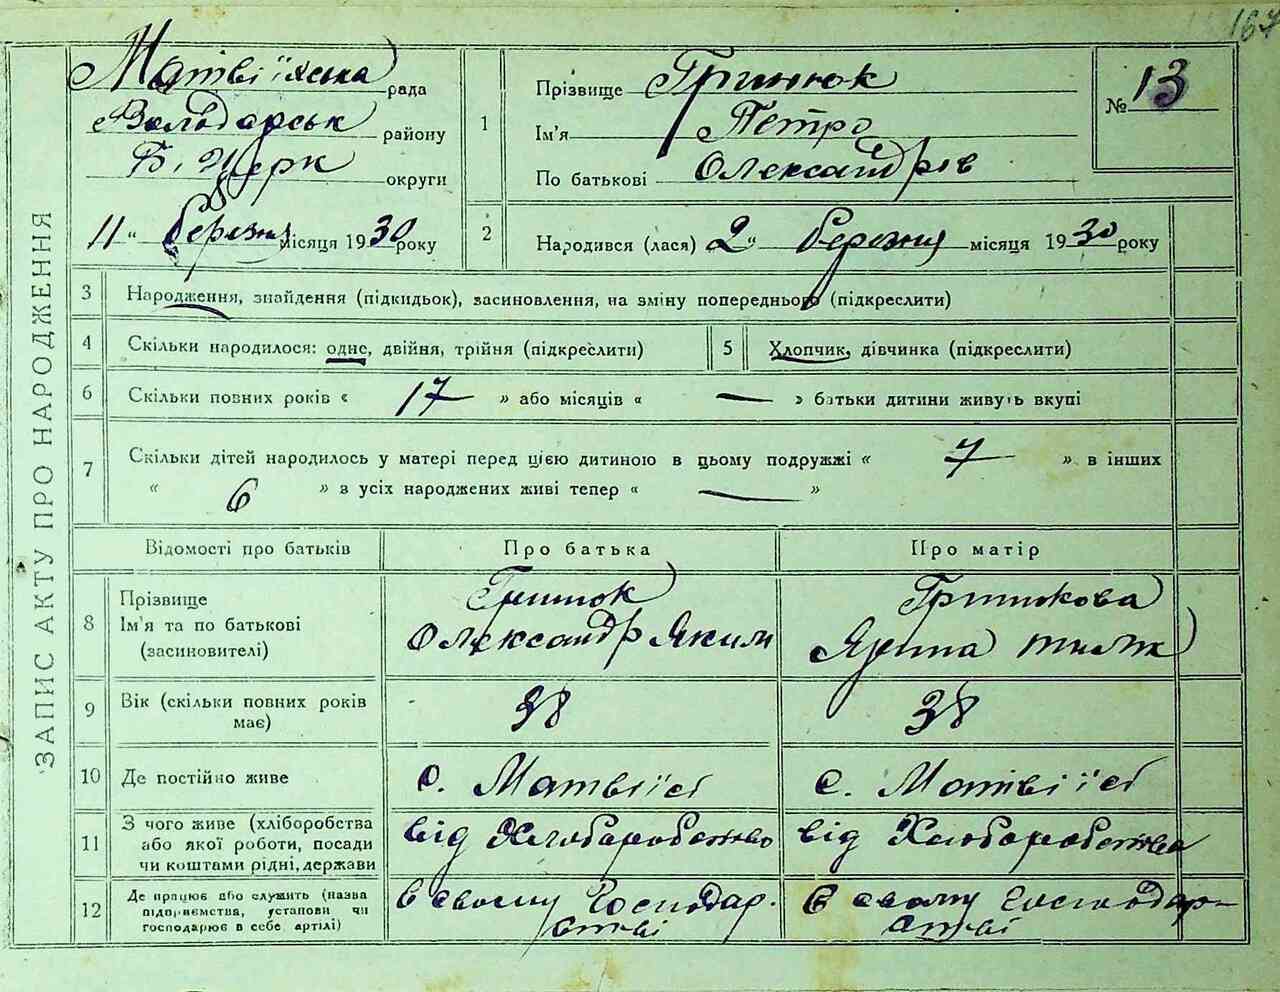 167
ЗАПИС АКТУ ПРО НАРОДЖЕННЯ
Матвіївська рада
Володарськ району
Б. Церк округи
11 " березня місяця 1930 року
1 Прізвище Гринюк
Ім'я Петро
По батькові Олександрів
№ 13
2 Народився (лася) 2 " березня місяця 1930 року
3 Народження, знайдення (підкидьок), засиновлення, на зміну попереднього (підкреслити)
4 Скільки народилося: одне, двійня, трійня (підкреслити) 5 Хлопчик, дівчинка (підкреслити)
6 Скільки повних років « 17 » або місяців « — » батьки дитини живуть вкупі
7 Скільки дітей народилось у матері перед цією дитиною в цьому подружжі « 7 » в інших
« 6 » з усіх народжених живі тепер « — »
Відомості про батьків Про батька Про матір
8 Прізвище
Ім'я та по батькові
(засиновителі)
Гринюк
Олександр Яким
Гринюкова
Ярина
9 Вік (скільки повних років
має)
38
38
10 Де постійно живе с. Матвіїсі с. Матвіїсі
11 З чого живе (хліборобства
або якої роботи, посади
чи коштами рідні, держави
від Хліборобство
від Хліборобства
12 Де працює або служить (назва
підприємства, установи чи
господарює в себе артілі)
в своєму Господар-
стві
В своему господар-
стві